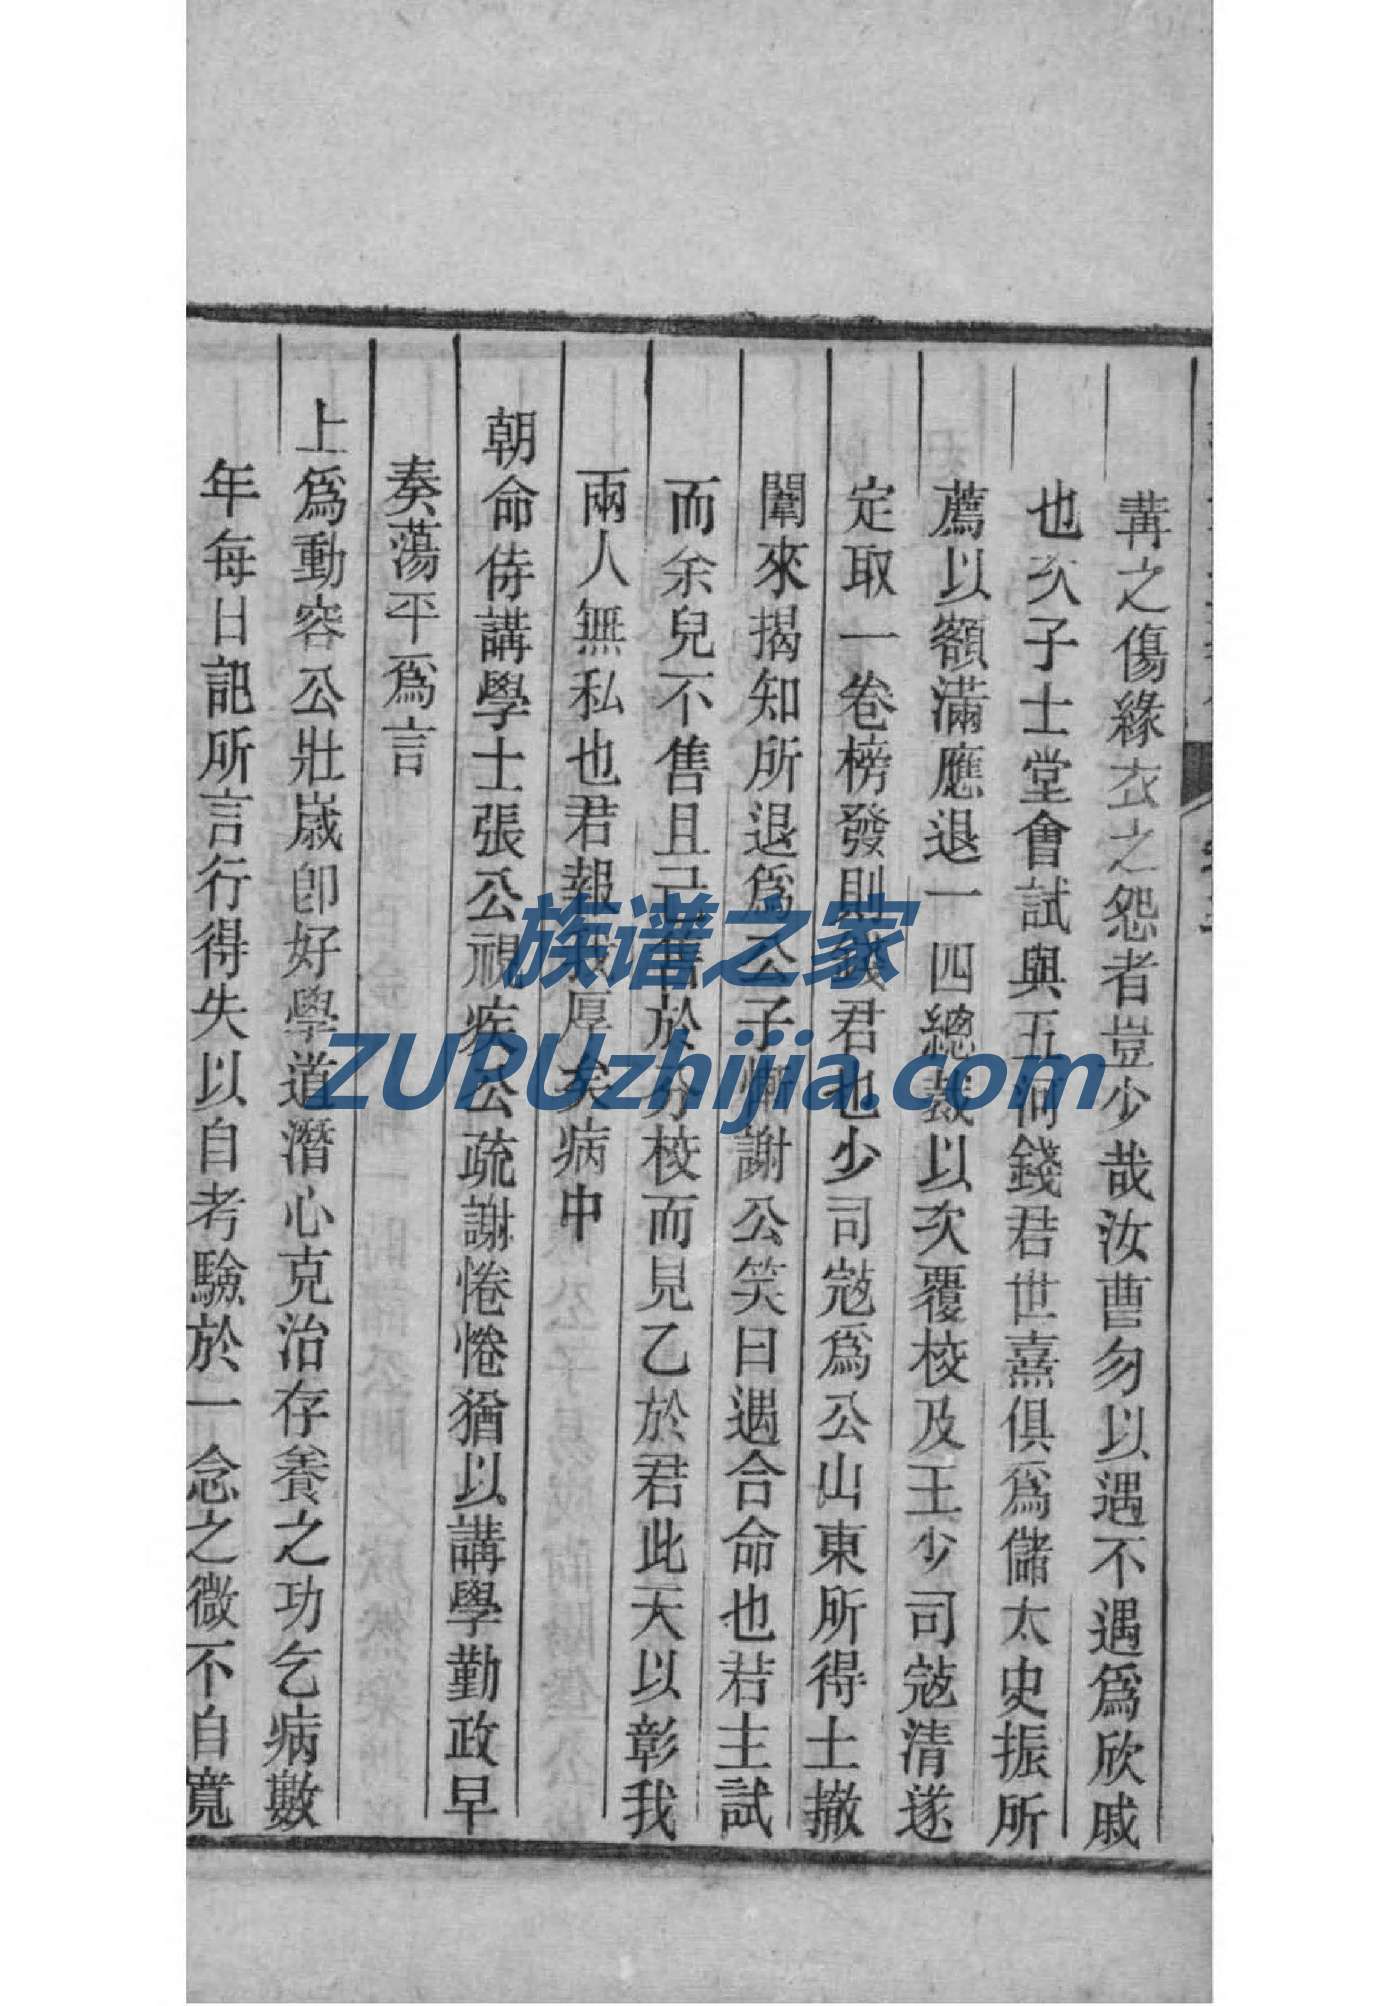 冓之傷緣衣之怨者豈少哉汝曹勿以遇不遇爲欣戚
也次子士堂會試與五河錢君世熹俱爲儲太史振所
薦以額滿應退一四總裁以次覆校及王少司寇清遂
定取一卷榜發則錢君也少司寇爲公山東所得士撤
闈來揭知所退爲公子慚謝公笑曰遇合命也若主試
而余兒不售且己售於分校而見乙於君此天以彰我
兩人無私也君報我厚矣病中
朝命侍講學士張公視疾公疏謝惓惓猶以講學勤政早
奏蕩平爲言
上爲動容公壯歲卽好學道潛心克治存養之功乞病數
年每日記所言行得失以自考驗於一念之微不自寬
族谱之家
ZUPUzhijia.com